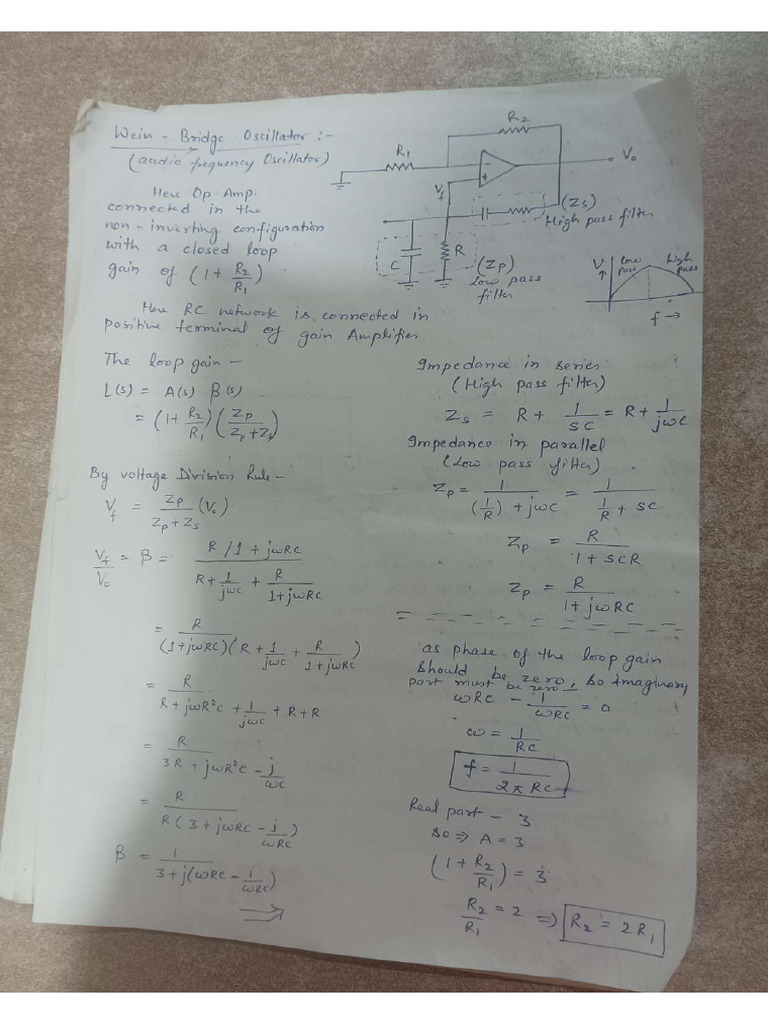 Wein - Bridge Oscillator :-
(audio frequency Oscillator)
Here Op. Amp.
connected in the
non-inverting configuration
with a closed loop
gain of (1 + R2/R1)
R1
R2
Vo
Vf
-
+
(Zs)
High pass filter
C
R
(Zp)
Low pass
filter
V ↑
low pass
high pass
f →
Here RC network is connected in
positive terminal of gain Amplifier
The loop gain -
L(s) = A(s) · β(s)
= (1 + R2/R1) (Zp/(Zp+Zs))
By voltage Division Rule -
Vf = Zp/(Zp+Zs) (Vo)
Vf/Vo = β = (R/1+jωRC)/(R + 1/jωC + R/(1+jωRC))
= R/((1+jωRC)(R + 1/jωC + R/(1+jωRC)))
= R/(R + jωR²C + 1/jωC + R + R)
= R/(3R + jωR²C - j/ωC)
= R/(R(3 + jωRC - j/ωRC))
β = 1/(3 + j(ωRC - 1/ωRC))
⇒
Impedance in series
(High pass filter)
Zs = R + 1/SC = R + 1/jωC
Impedance in parallel
(Low pass filter)
Zp = 1/((1/R) + jωC) = 1/(1/R + SC)
Zp = R/(1 + SCR)
Zp = R/(1 + jωRC)
as phase of the loop gain
should be zero, so Imaginary
part must be zero -
ωRC - 1/ωRC = 0
ω = 1/RC
f = 1/2πRC
Real part - 3
so ⇒ A = 3
(1 + R2/R1) = 3
R2/R1 = 2 ⇒ R2 = 2R1